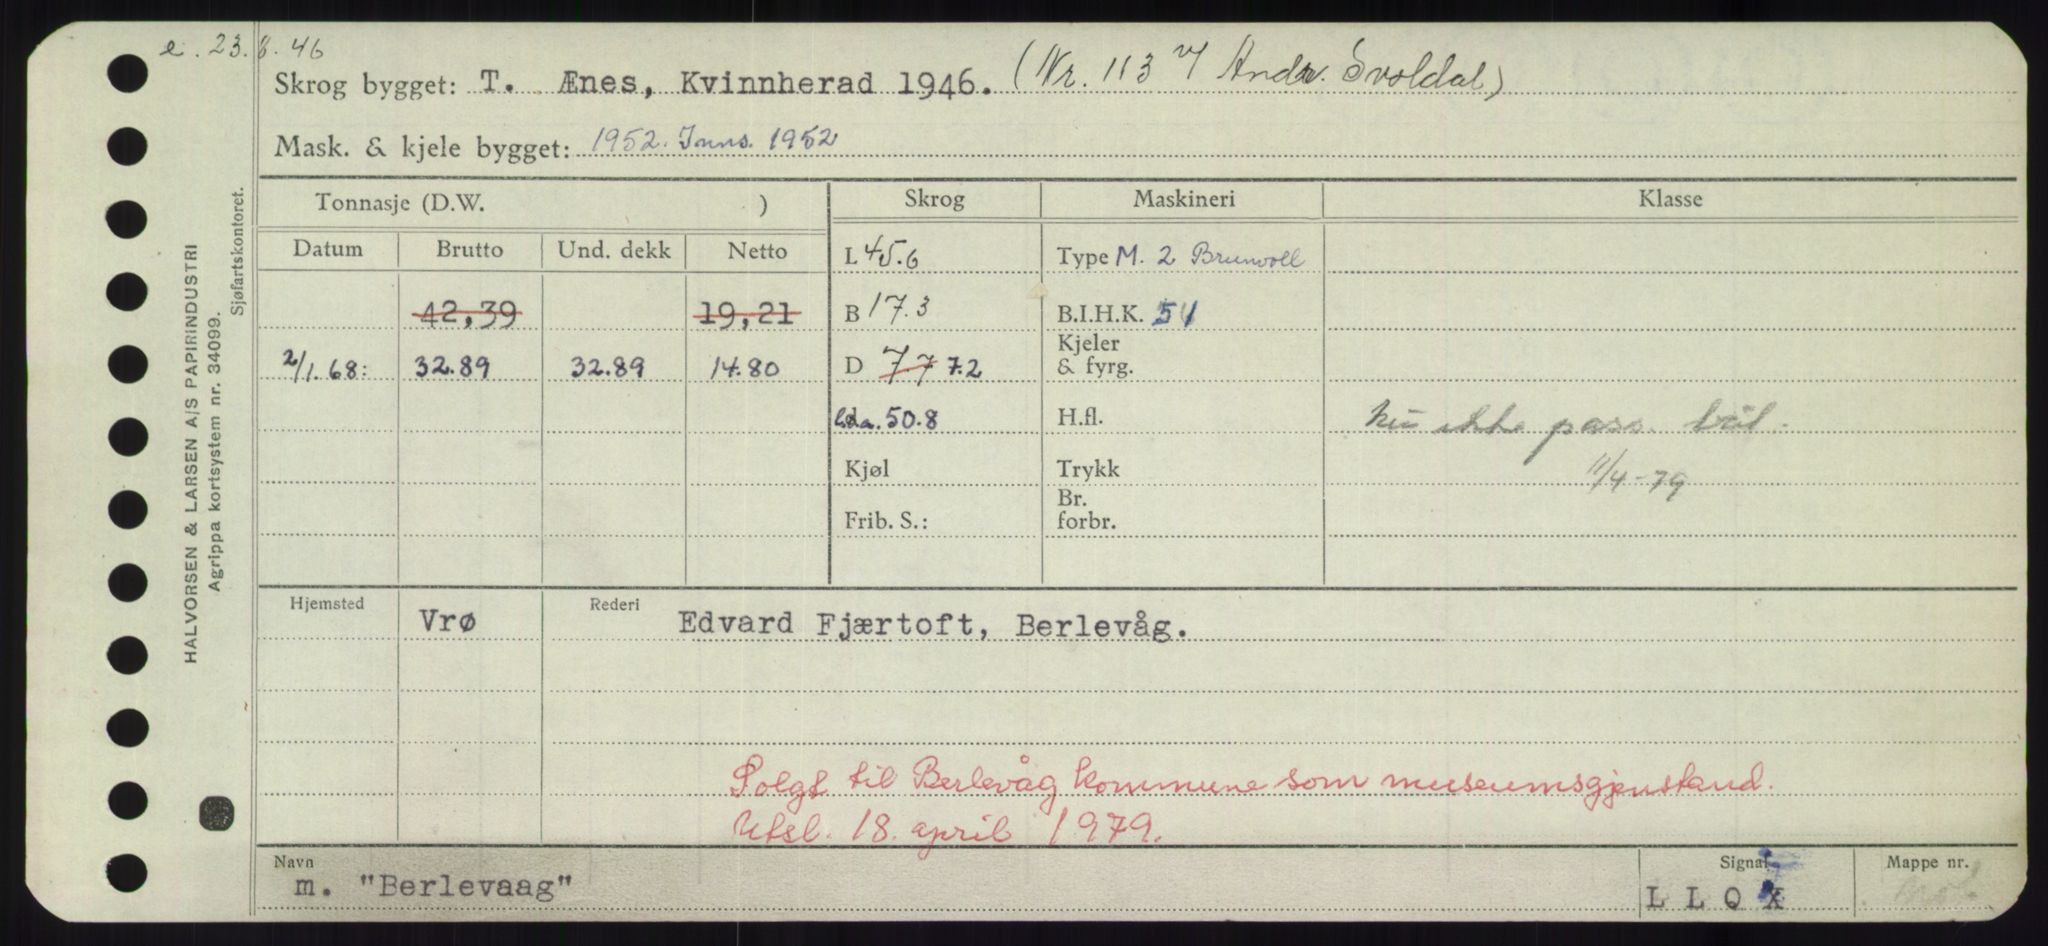 e. 23.8.46
Skrog bygget: T. Ænes, Kvinnherad 1946. (Nr. 113 v/ Andr. Svoldal)
Mask. & kjele bygget: 1952. Inns. 1952
Tonnasje (D.W. ) Skrog Maskineri Klasse
Datum Brutto Und. dekk Netto L 45.6 Type M. 2 Brunvoll
42,39 19,21 B 17.3 B.I.H.K. 51
2/1.68: 32.89 32.89 14.80 D 7.7 7.2 Kjeler & fyrg.
50.8 H.fl. ikke pass.
Kjøl Trykk 11/4-79
Frib. S.: Br. forbr.
Hjemsted Vrø Rederi Edvard Fjærtoft, Berlevåg.
Solgt til Berlevåg kommune som museumsgjenstand.
Utsl. 18. april 1979.
Navn Signal Mappe nr.
m. "Berlevaag" L L Q X
HALVORSEN & LARSEN A/S PAPIRINDUSTRI
Agrippa kortsystem nr. 34099.
Sjøfartskontoret.